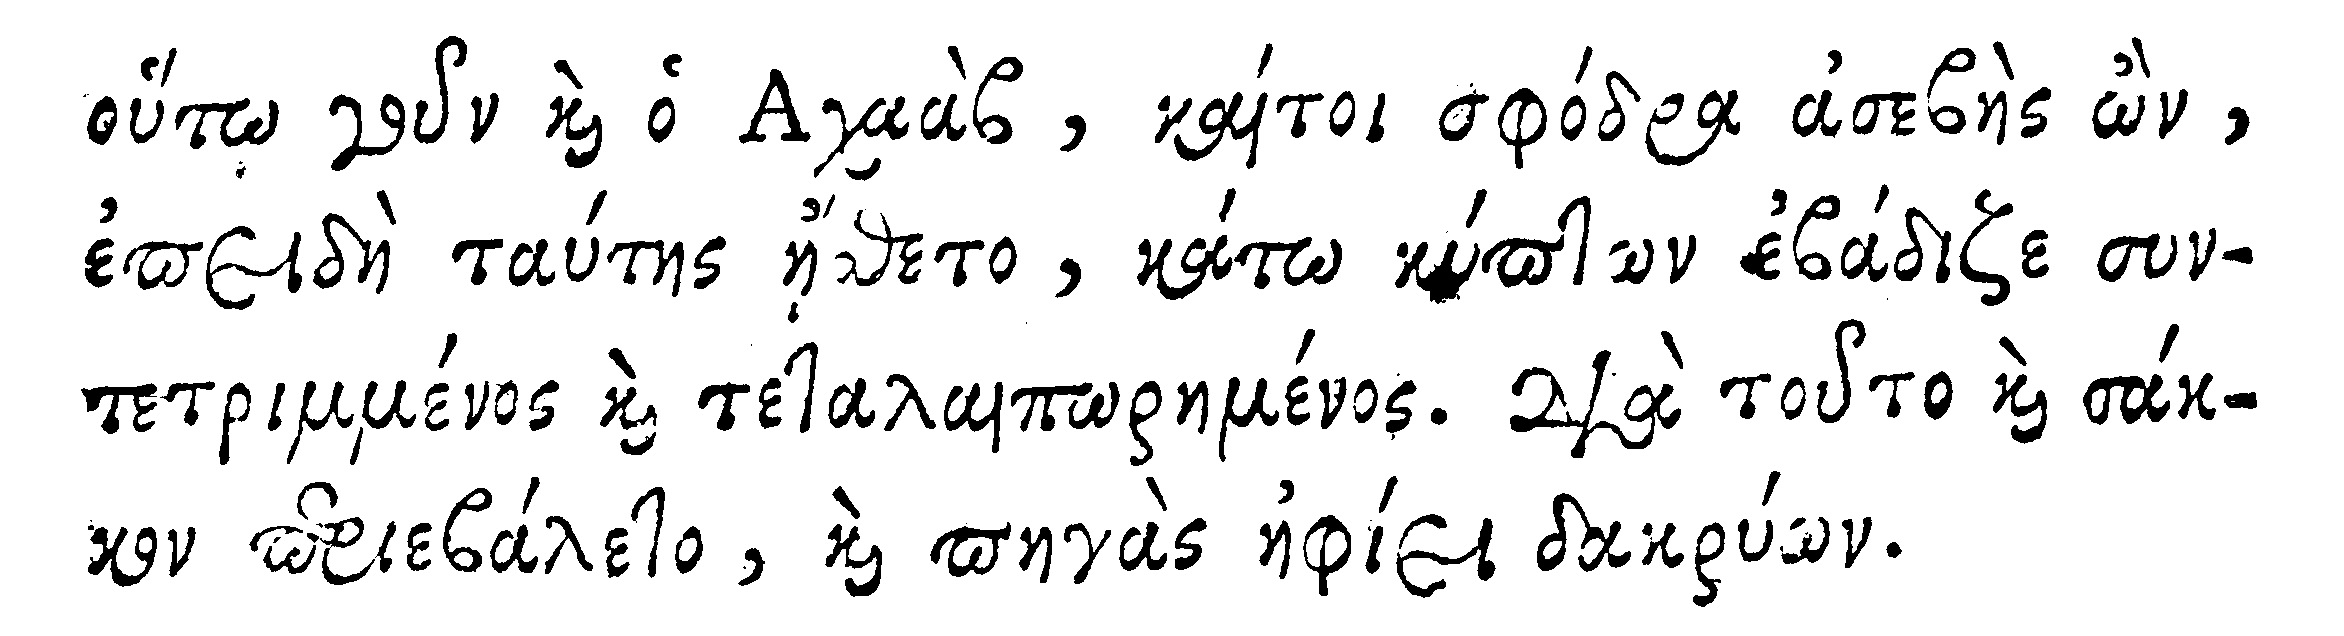 οὕτω γοῦν καὶ ὁ Αχαὰβ, καίτοι σφόδρα ἀσεβὴς ὢν,
ἐπειδὴ ταύτης ᾔσθετο, κάτω κύπτων ἐβάδιζε συν-
τετριμμένος καὶ τεταλαιπωρημένος. Διὰ τοῦτο καὶ σάκ-
κον περιεβάλετο, καὶ πηγὰς ἠφίει δακρύων.